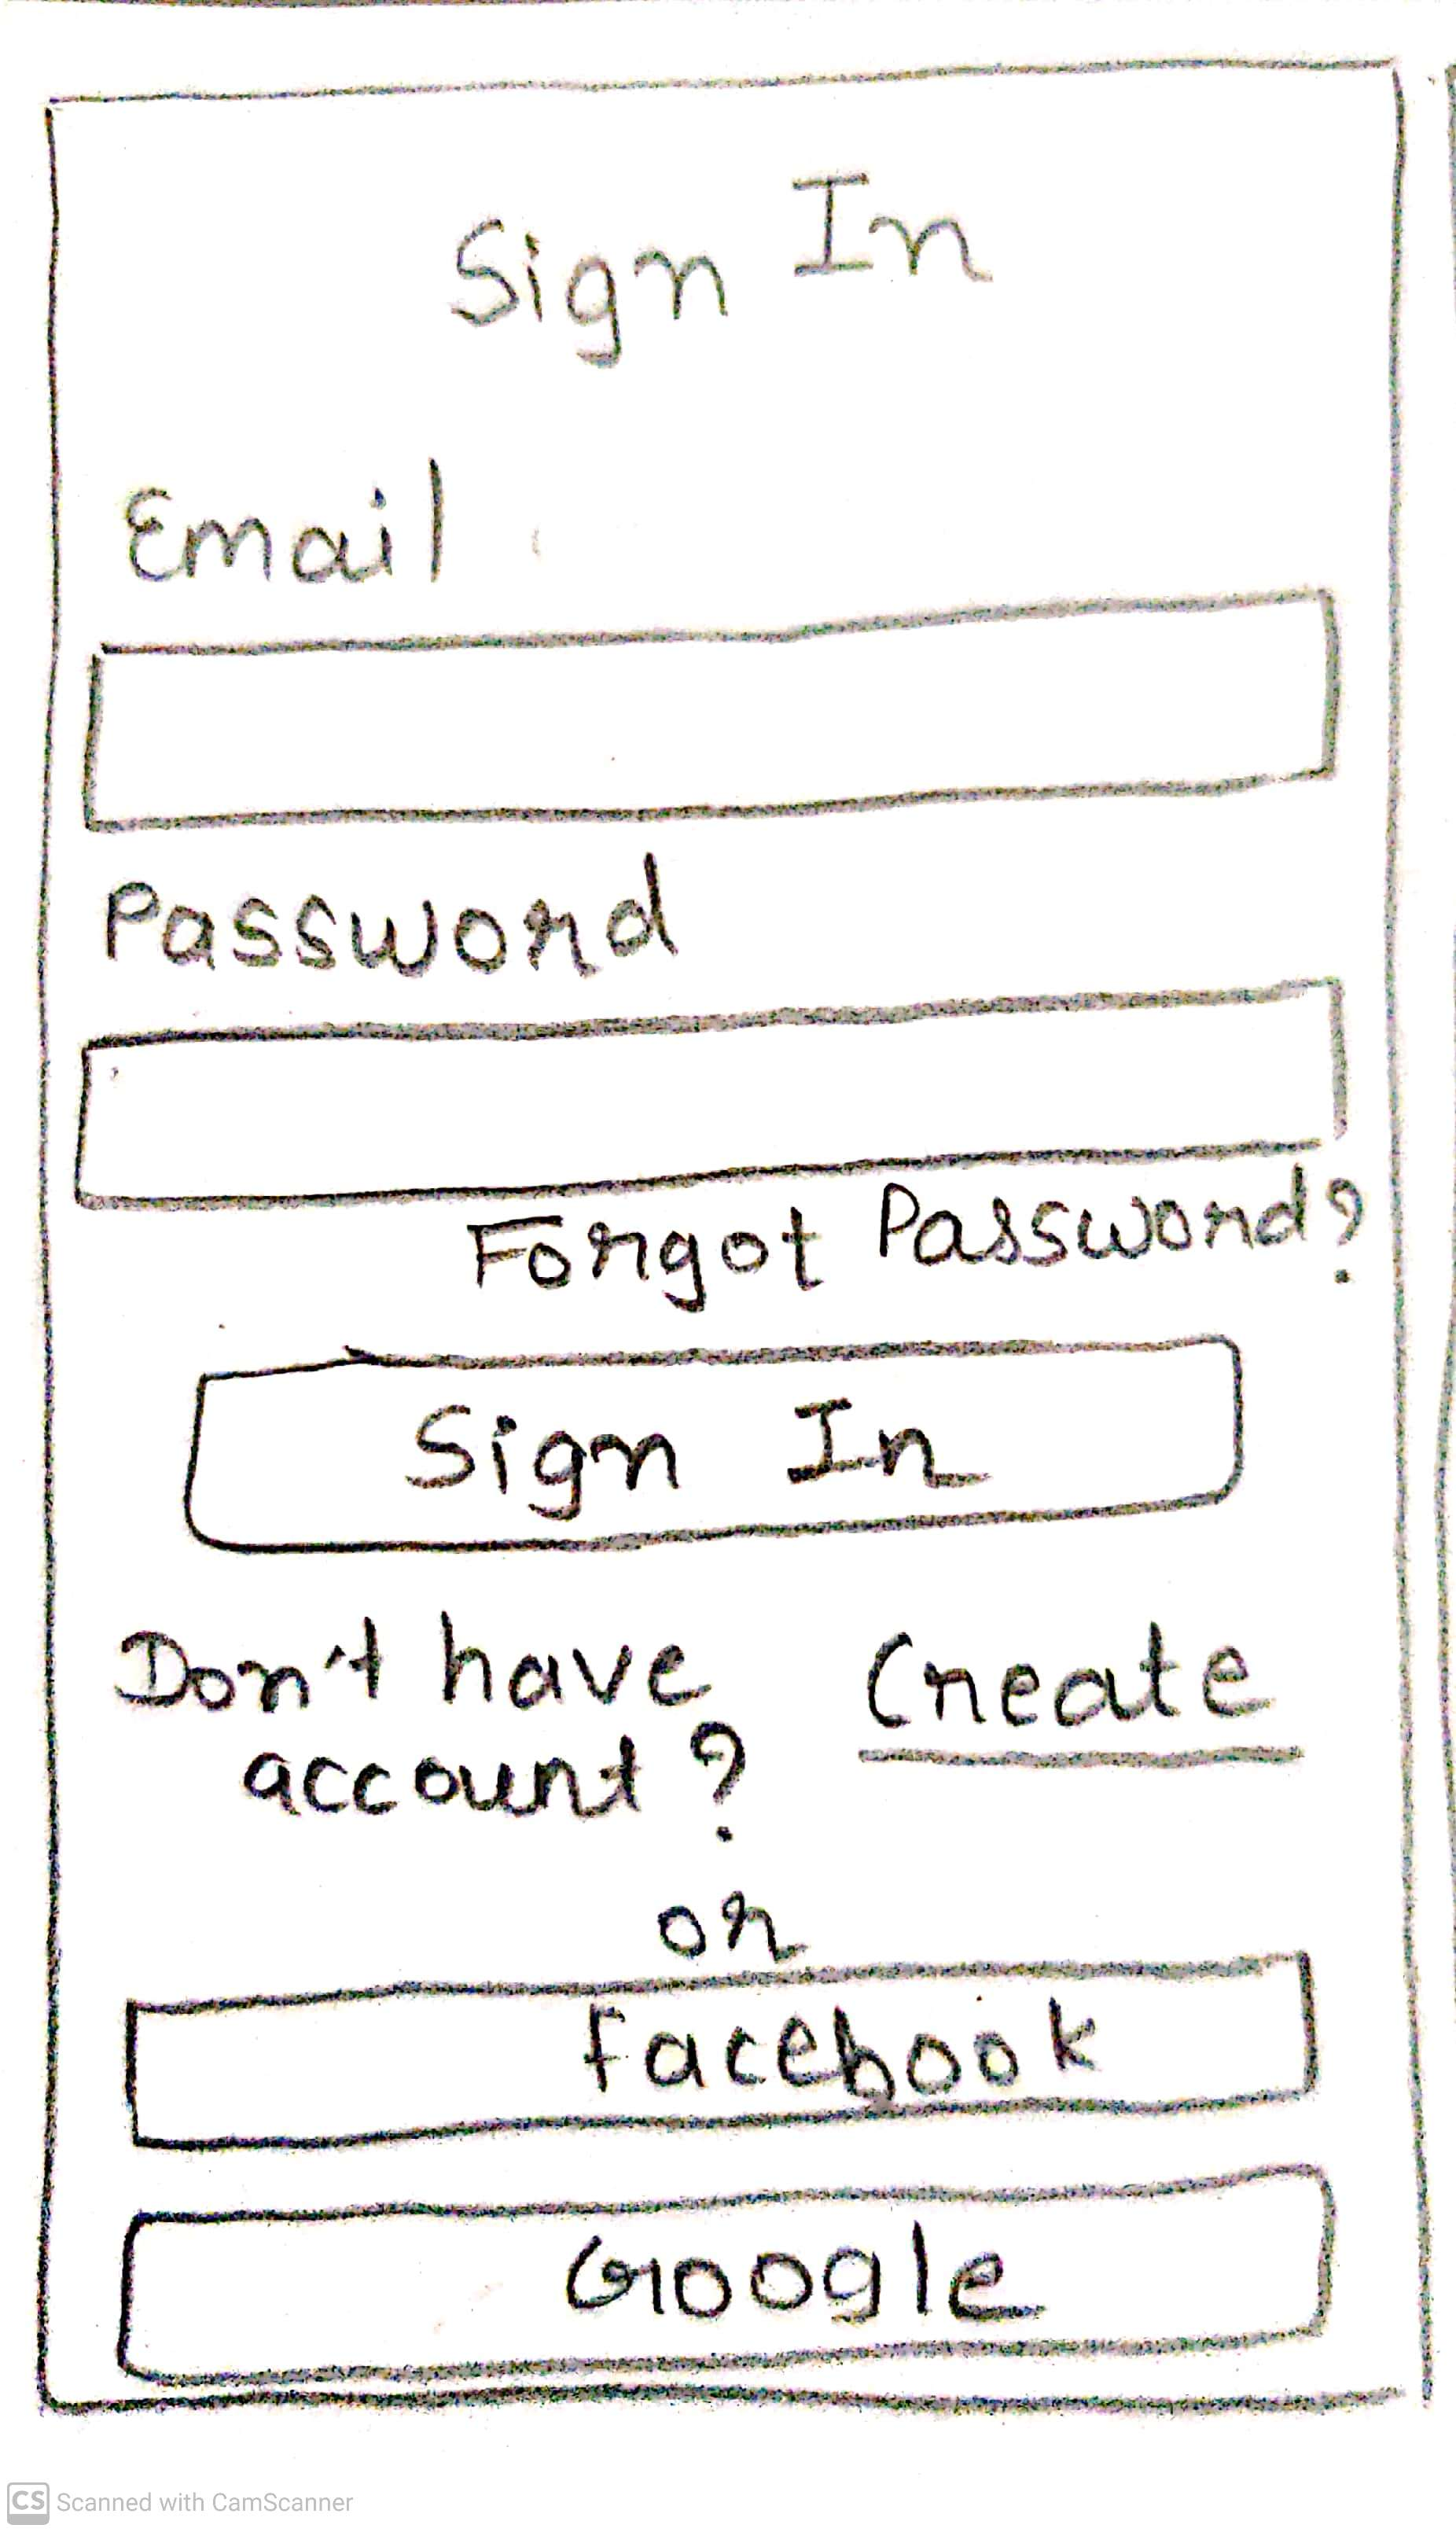 Sign In
Email
Password
Forgot Password?
Sign In
Don't have Create
account?
or
facebook
Google
CS Scanned with CamScanner